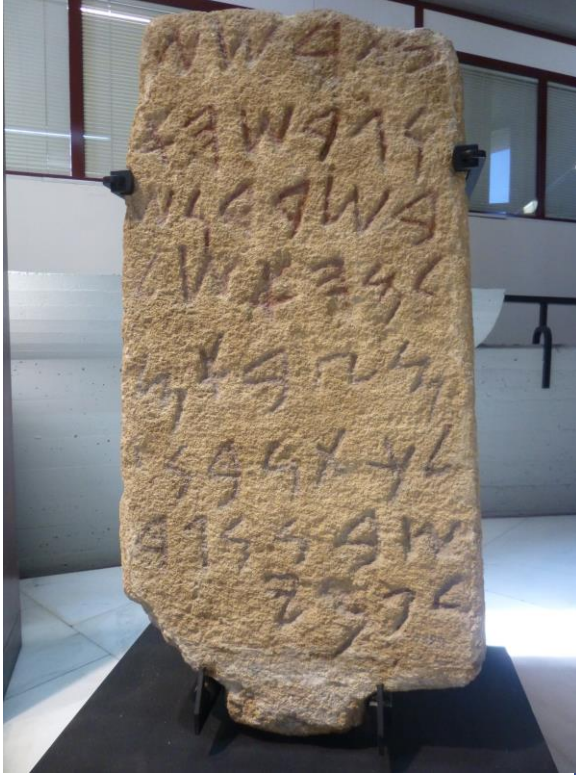 𐤁𐤕𐤓𐤔𐤔
𐤅𐤂𐤓𐤔𐤄𐤀
𐤁𐤔𐤓𐤃𐤍𐤔
𐤋𐤌𐤄𐤀𐤔𐤋
𐤌𐤑𐤁𐤀𐤌
𐤋𐤊𐤕𐤍𐤁𐤍
𐤔𐤁𐤍𐤍𐤂𐤓
𐤋𐤐𐤌𐤉